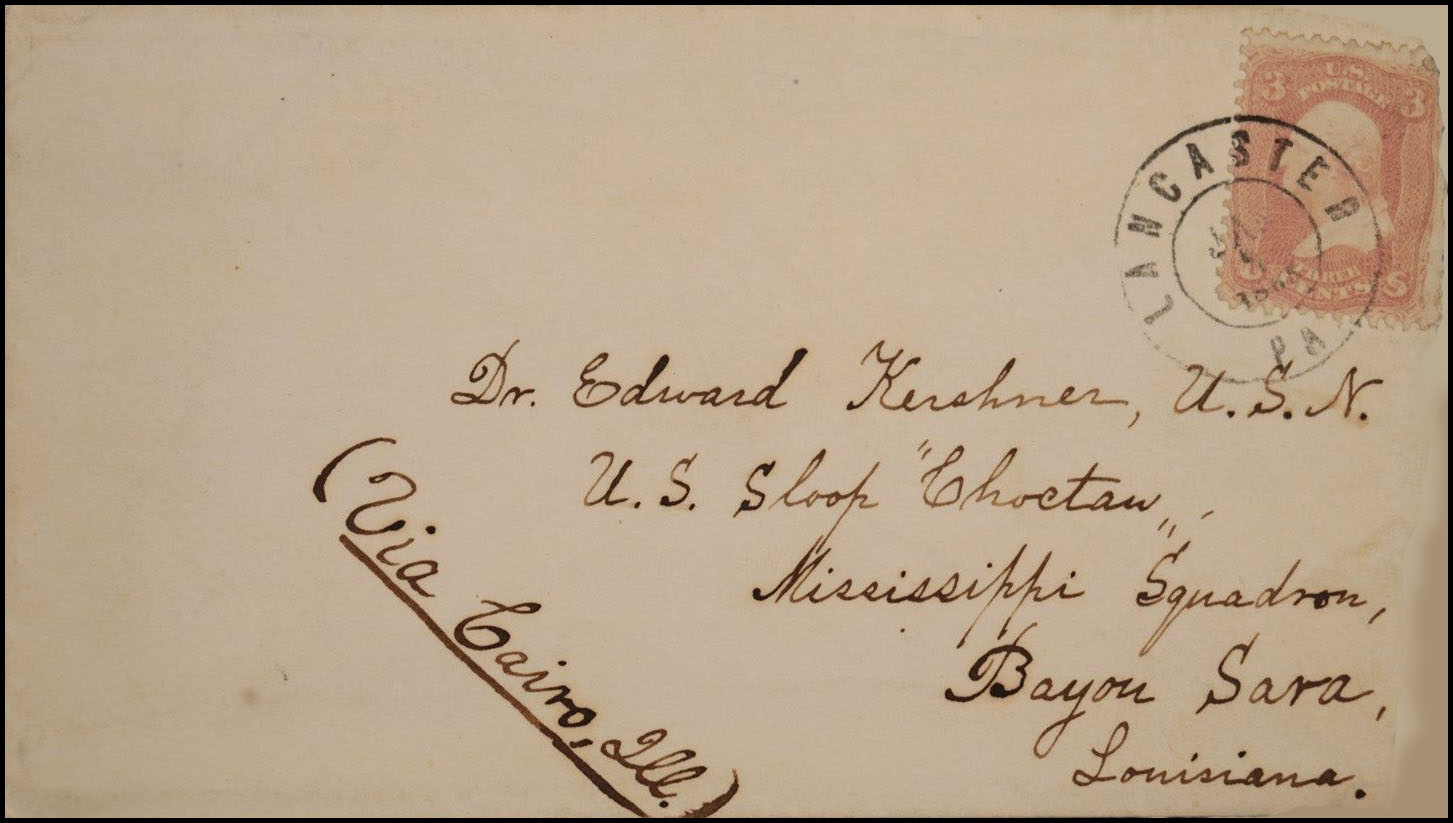 3 U.S. 3
POSTAGE
THREE
CENTS
LANCASTER
PA
Dr. Edward Kershner, U.S.N.
U.S. Sloop "Choctaw",
Mississippi Squadron,
Bayou Sara,
Louisiana.
(Via Cairo, Ill.)